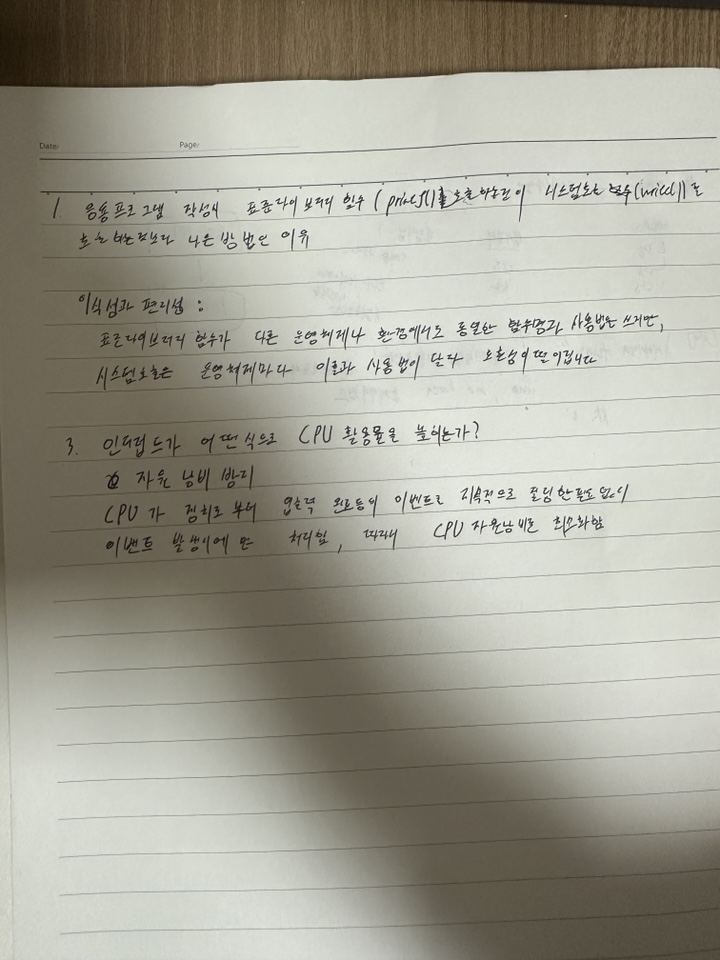 Date/ Page/
1. 응용프로그램 작성시 표준라이브러리 함수(printf())를 호출하는것이 시스템호출 함수(write())를
호출하는것보다 나은 방법인 이유
이식성과 편리성 :
표준라이브러리 함수가 다른 운영체제나 환경에서도 동일한 함수명과 사용법을 쓰지만,
시스템호출은 운영체제마다 이름과 사용법이 달라 호환성이 떨어집니다
3. 인터럽트가 어떤식으로 CPU 활용률을 높이는가?
자원 낭비 방지
CPU가 장치로부터 입출력 완료등의 이벤트를 지속적으로 폴링할필요없이
이벤트 발생시에만 처리함, 따라서 CPU 자원낭비를 최소화함